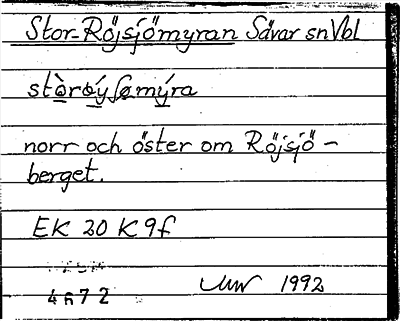 Stor-Röjsjömyran Sävar sn Vbl
norr och öster om Röjsjö-
berget.
EK 20 K 9f
1992
4672